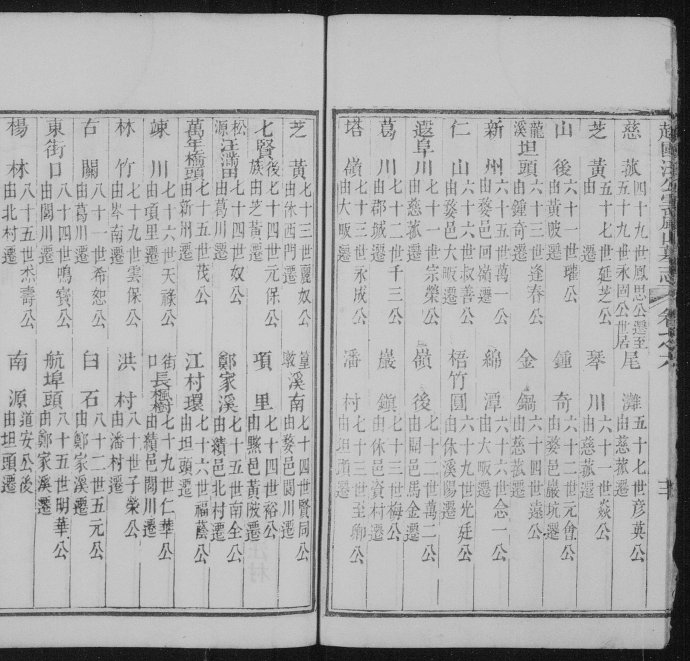 慈菰 四十九世鳳思公遷至 五十九世永固公世居
尾灘 五十七世彦英公 由慈菰遷
芝黄 五十七世延芝公 由 遷
琴川 六十一世焱公 由慈菰遷
山後 六十一世璀公 由黄陂遷
鍾奇 六十二世元會公 由婺邑巖坑遷
龍溪坦頭 六十三世逢春公 由鍾奇遷
金鍋 六十四世遠公 由慈菰遷
新州 六十五世萬一公 由婺邑囘嶺遷
綿潭 六十九世念一公 由大畈遷
仁山 六十六世叔善公 由婺邑大畈遷
梧竹圓 六十九世光廷公 由休溪陽遷
遐阜川 七十一世宗榮公 由慈菰遷
嶺後 七十二世萬二公 由開邑馬金遷
葛川 七十二世千三公 由郡城遷
巖鎮 七十三世梅公 由休邑資村遷
塔嶺 七十三世永成公 由大畈遷
潘村 七十三世至卿公 由坦頭遷
芝黄 七十三世麗奴公 由休西門遷
篁墩溪南 七十四世賢同公 由婺邑閬川遷
七賢 後七十四世元保公 族由芝黄遷
項里 七十四世裕公 由黟邑黄陂遷
松源汪滿田 七十四世奴公 由葛川遷
鄭家溪 七十五世南全公 由績邑北村遷
萬年橋頭 七十五世茂公 由新州遷
江村環 七十六世福蔭公 由坦頭遷
竦川 七十六世天祿公 由項里遷
街口長樹 七十九世仁華公 由績邑閬川遷
林竹 七十九世雲保公 由岑南遷
洪村 八十世子榮公 由潘村遷
右關 八十一世希恕公 由葛川遷
臼石 八十二世五元公 由鄭家溪遷
東街口 八十四世鳴賓公 由閬川遷
航埠頭 八十五世明華公 由鄭家溪遷
楊林 八十五世杰壽公 由北村遷
南源 道安公後 由坦頭遷